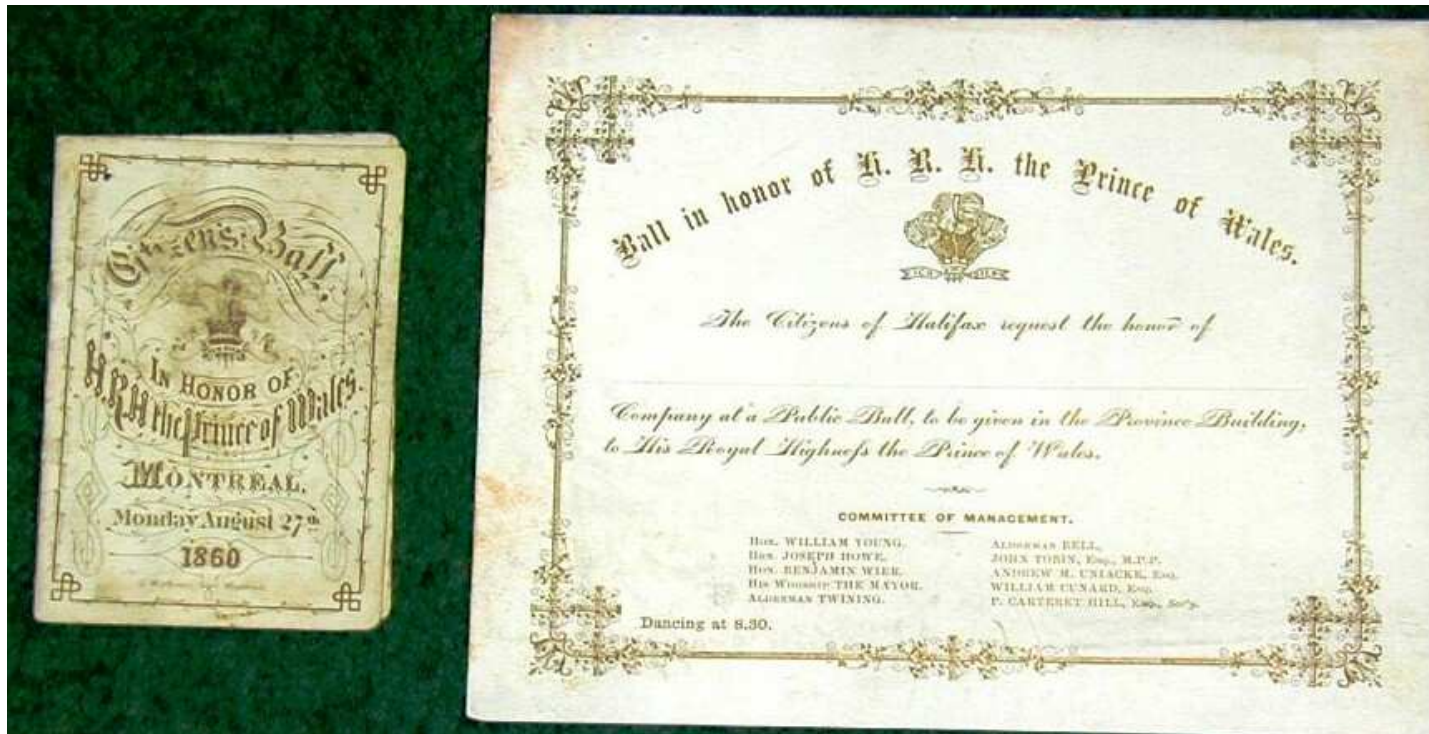 Citizens' Ball
IN HONOR OF
H.R.H the Prince of Wales.
MONTREAL.
Monday August 27th
1860
Ball in honor of H. R. H. the Prince of Wales.
ICH DIEN
The Citizens of Halifax request the honor of
Company at a Public Ball, to be given in the Province Building,
to His Royal Highness the Prince of Wales.
COMMITTEE OF MANAGEMENT.
HON. WILLIAM YOUNG.
HON. JOSEPH HOWE.
HON. BENJAMIN WIER.
HIS WORSHIP THE MAYOR.
ALDERMAN TWINING.
ALDERMAN BELL,
JOHN TOBIN, Esq., M.P.P.
ANDREW M. UNIACKE, Esq.
WILLIAM CUNARD, Esq.
P. CARTERET HILL, Esq., Sec'y.
Dancing at 8.30.